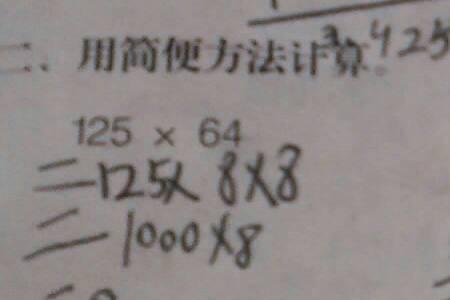 3 425
二、用简便方法计算。
125 × 64
=125×8×8
=1000×8